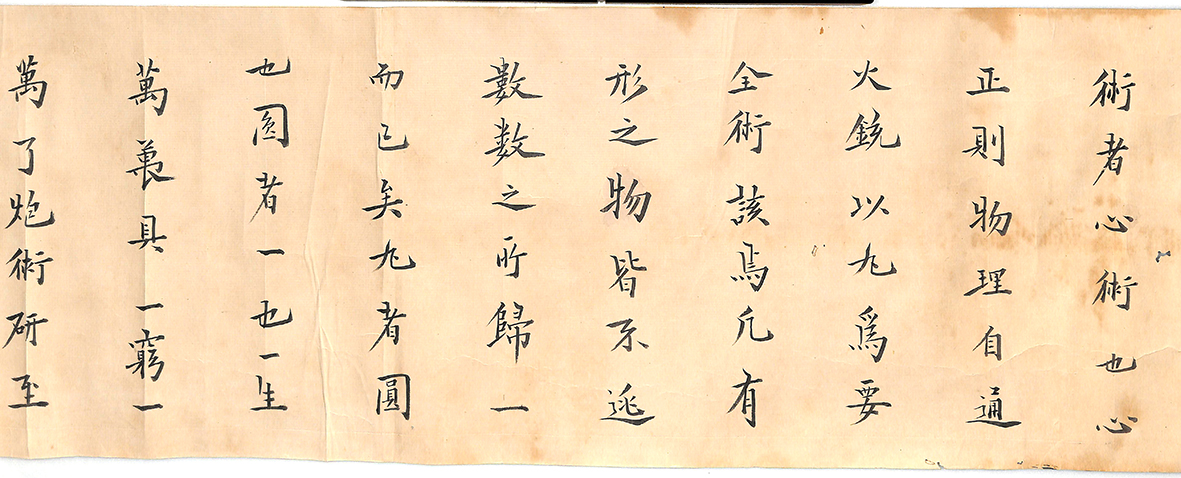 術者心術也心
正則物理自通
火銃以丸爲要
全術該焉凡有
形之物皆不逃
數數之所歸一
而已矣丸者圓
也圓者一也一生
萬萬具一窮一
萬了炮術研至